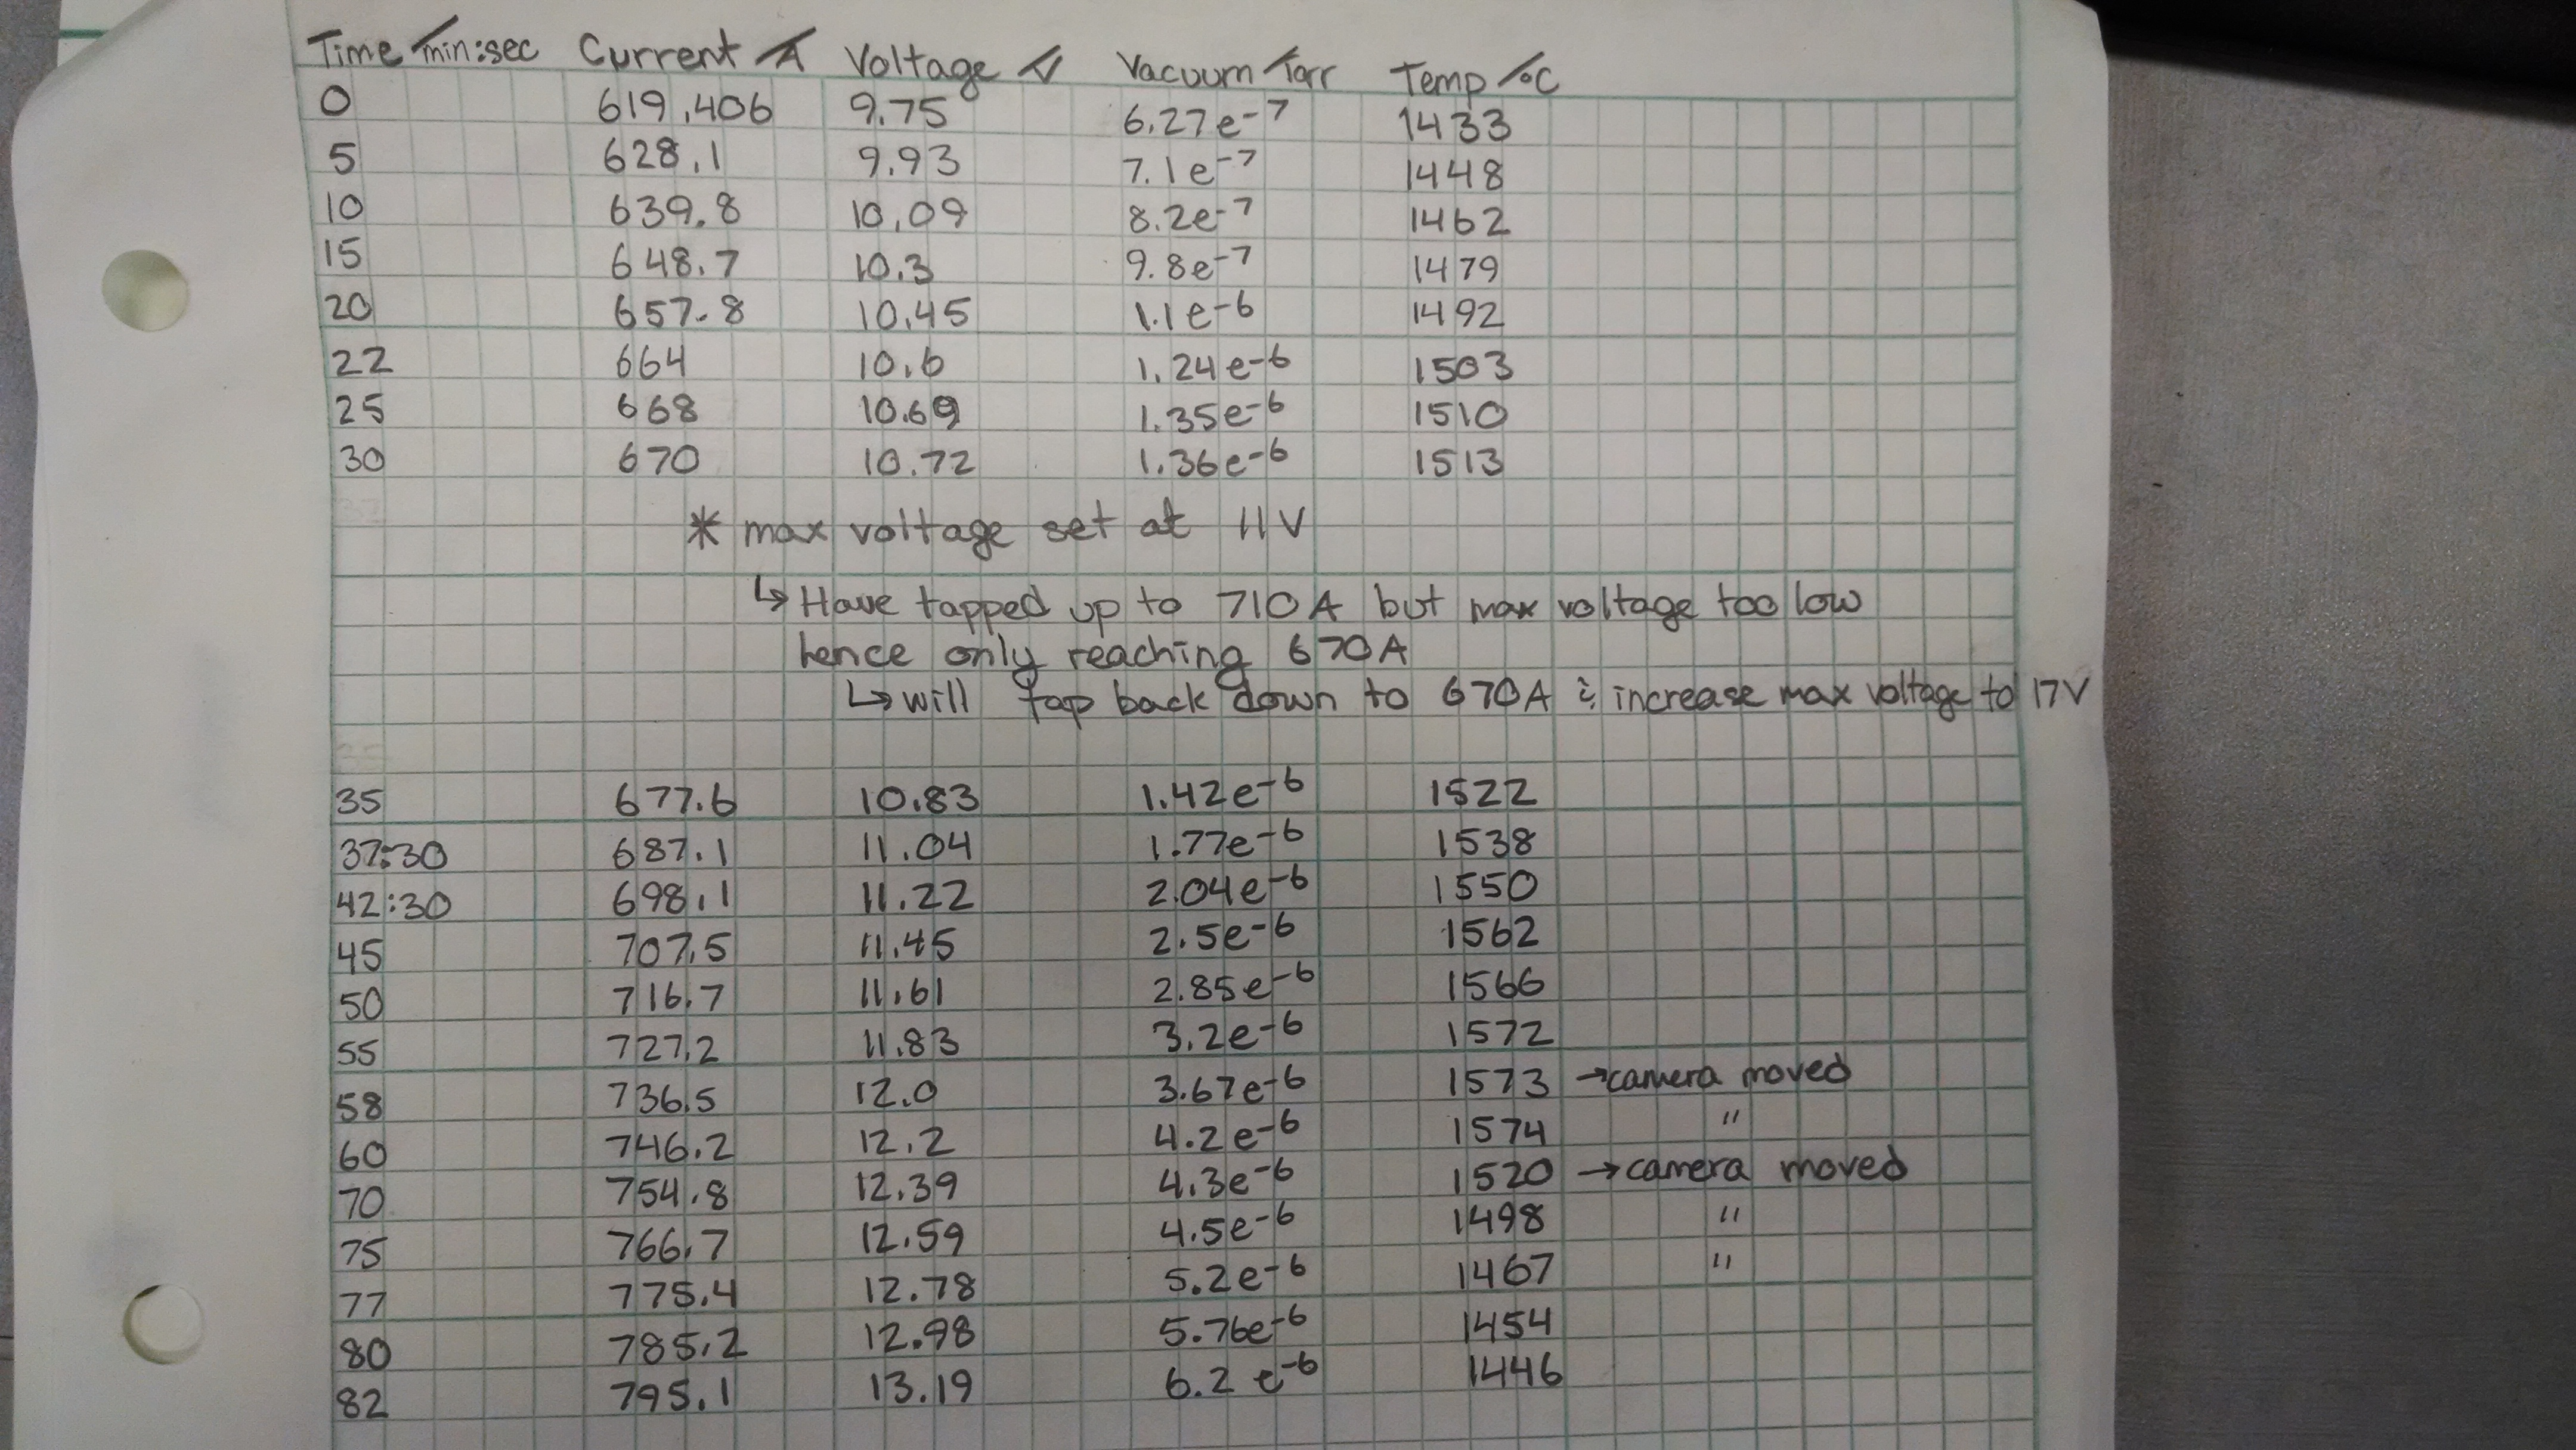 Time/min:sec Current/A Voltage/V Vacuum/Torr Temp/°C
0 619.406 9.75 6.27e-7 1433
5 628.1 9.93 7.1e-7 1448
10 639.8 10.09 8.2e-7 1462
15 648.7 10.3 9.8e-7 1479
20 657.8 10.45 1.1e-6 1492
22 664 10.6 1.24e-6 1503
25 668 10.69 1.35e-6 1510
30 670 10.72 1.36e-6 1513
* max voltage set at 11V
↳ Have tapped up to 710A but max voltage too low
hence only reaching 670A
↳ will tap back down to 670A & increase max voltage to 17V
35 677.6 10.83 1.42e-6 1522
37:30 687.1 11.04 1.77e-6 1538
42:30 698.1 11.22 2.04e-6 1550
45 707.5 11.45 2.5e-6 1562
50 716.7 11.61 2.85e-6 1566
55 727.2 11.83 3.2e-6 1572
58 736.5 12.0 3.67e-6 1573 → camera moved
60 746.2 12.2 4.2e-6 1574 "
70 754.8 12.39 4.3e-6 1520 → camera moved
75 766.7 12.59 4.5e-6 1498 "
77 775.4 12.78 5.2e-6 1467 "
80 785.2 12.98 5.76e-6 1454
82 795.1 13.19 6.2e-6 1446